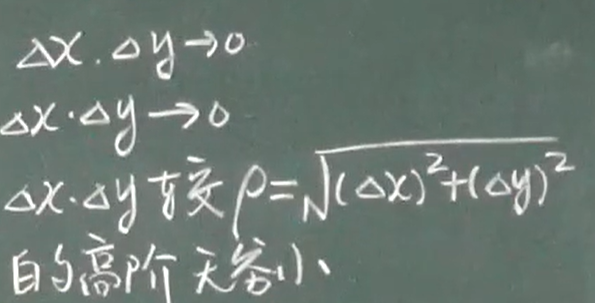 Δx.Δy→0
Δx·Δy→0
Δx·Δy 较 ρ=√(Δx)²+(Δy)²
的高阶无穷小